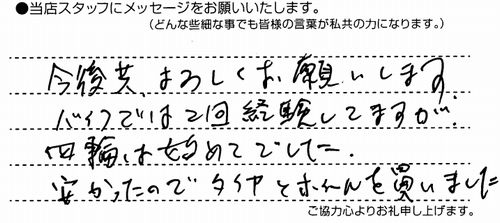 ●当店スタッフにメッセージをお願いいたします。
(どんな些細な事でも皆様の言葉が私共の力になります。)
今後共、よろしくお願いします。
バイクでは2回経験してますが、
四輪は始めてでした。
安かったのでタイヤとホイールを買いました
ご協力心よりお礼申し上げます。